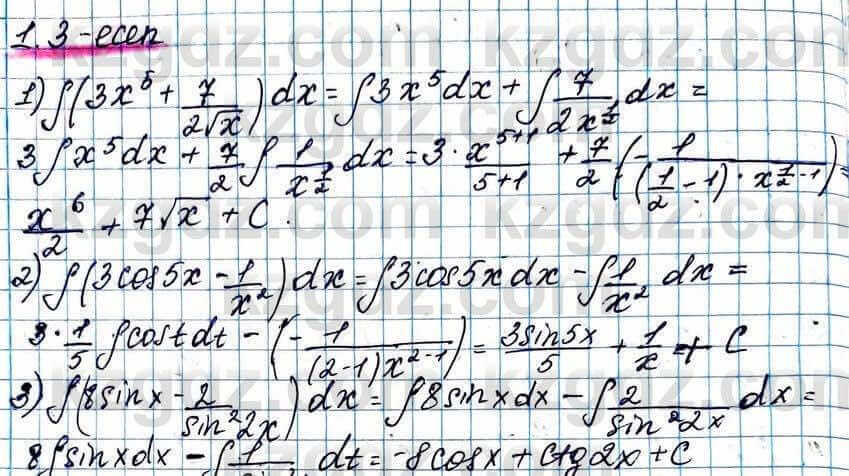 1.3-есеп
1) ∫(3x⁵ + 7/(2√x)) dx = ∫3x⁵dx + ∫ 7/(2x^(1/2)) dx =
3∫x⁵dx + 7/2 ∫ 1/x^(1/2) dx = 3 · x^(5+1)/(5+1) + 7/2 (- 1/((1/2 - 1) · x^(1/2 - 1))) =
x⁶/2 + 7√x + C.
2) ∫(3cos5x - 1/x²) dx = ∫3cos5x dx - ∫ 1/x² dx =
3 · 1/5 ∫cost dt - (- 1/((2-1)x^(2-1))) = 3sin5x/5 + 1/x + C
3) ∫(8sinx - 2/sin²2x) dx = ∫8sinx dx - ∫ 2/sin²2x dx =
8∫sinx dx - ∫ 1/ dt = -8cosx + ctg2x + C